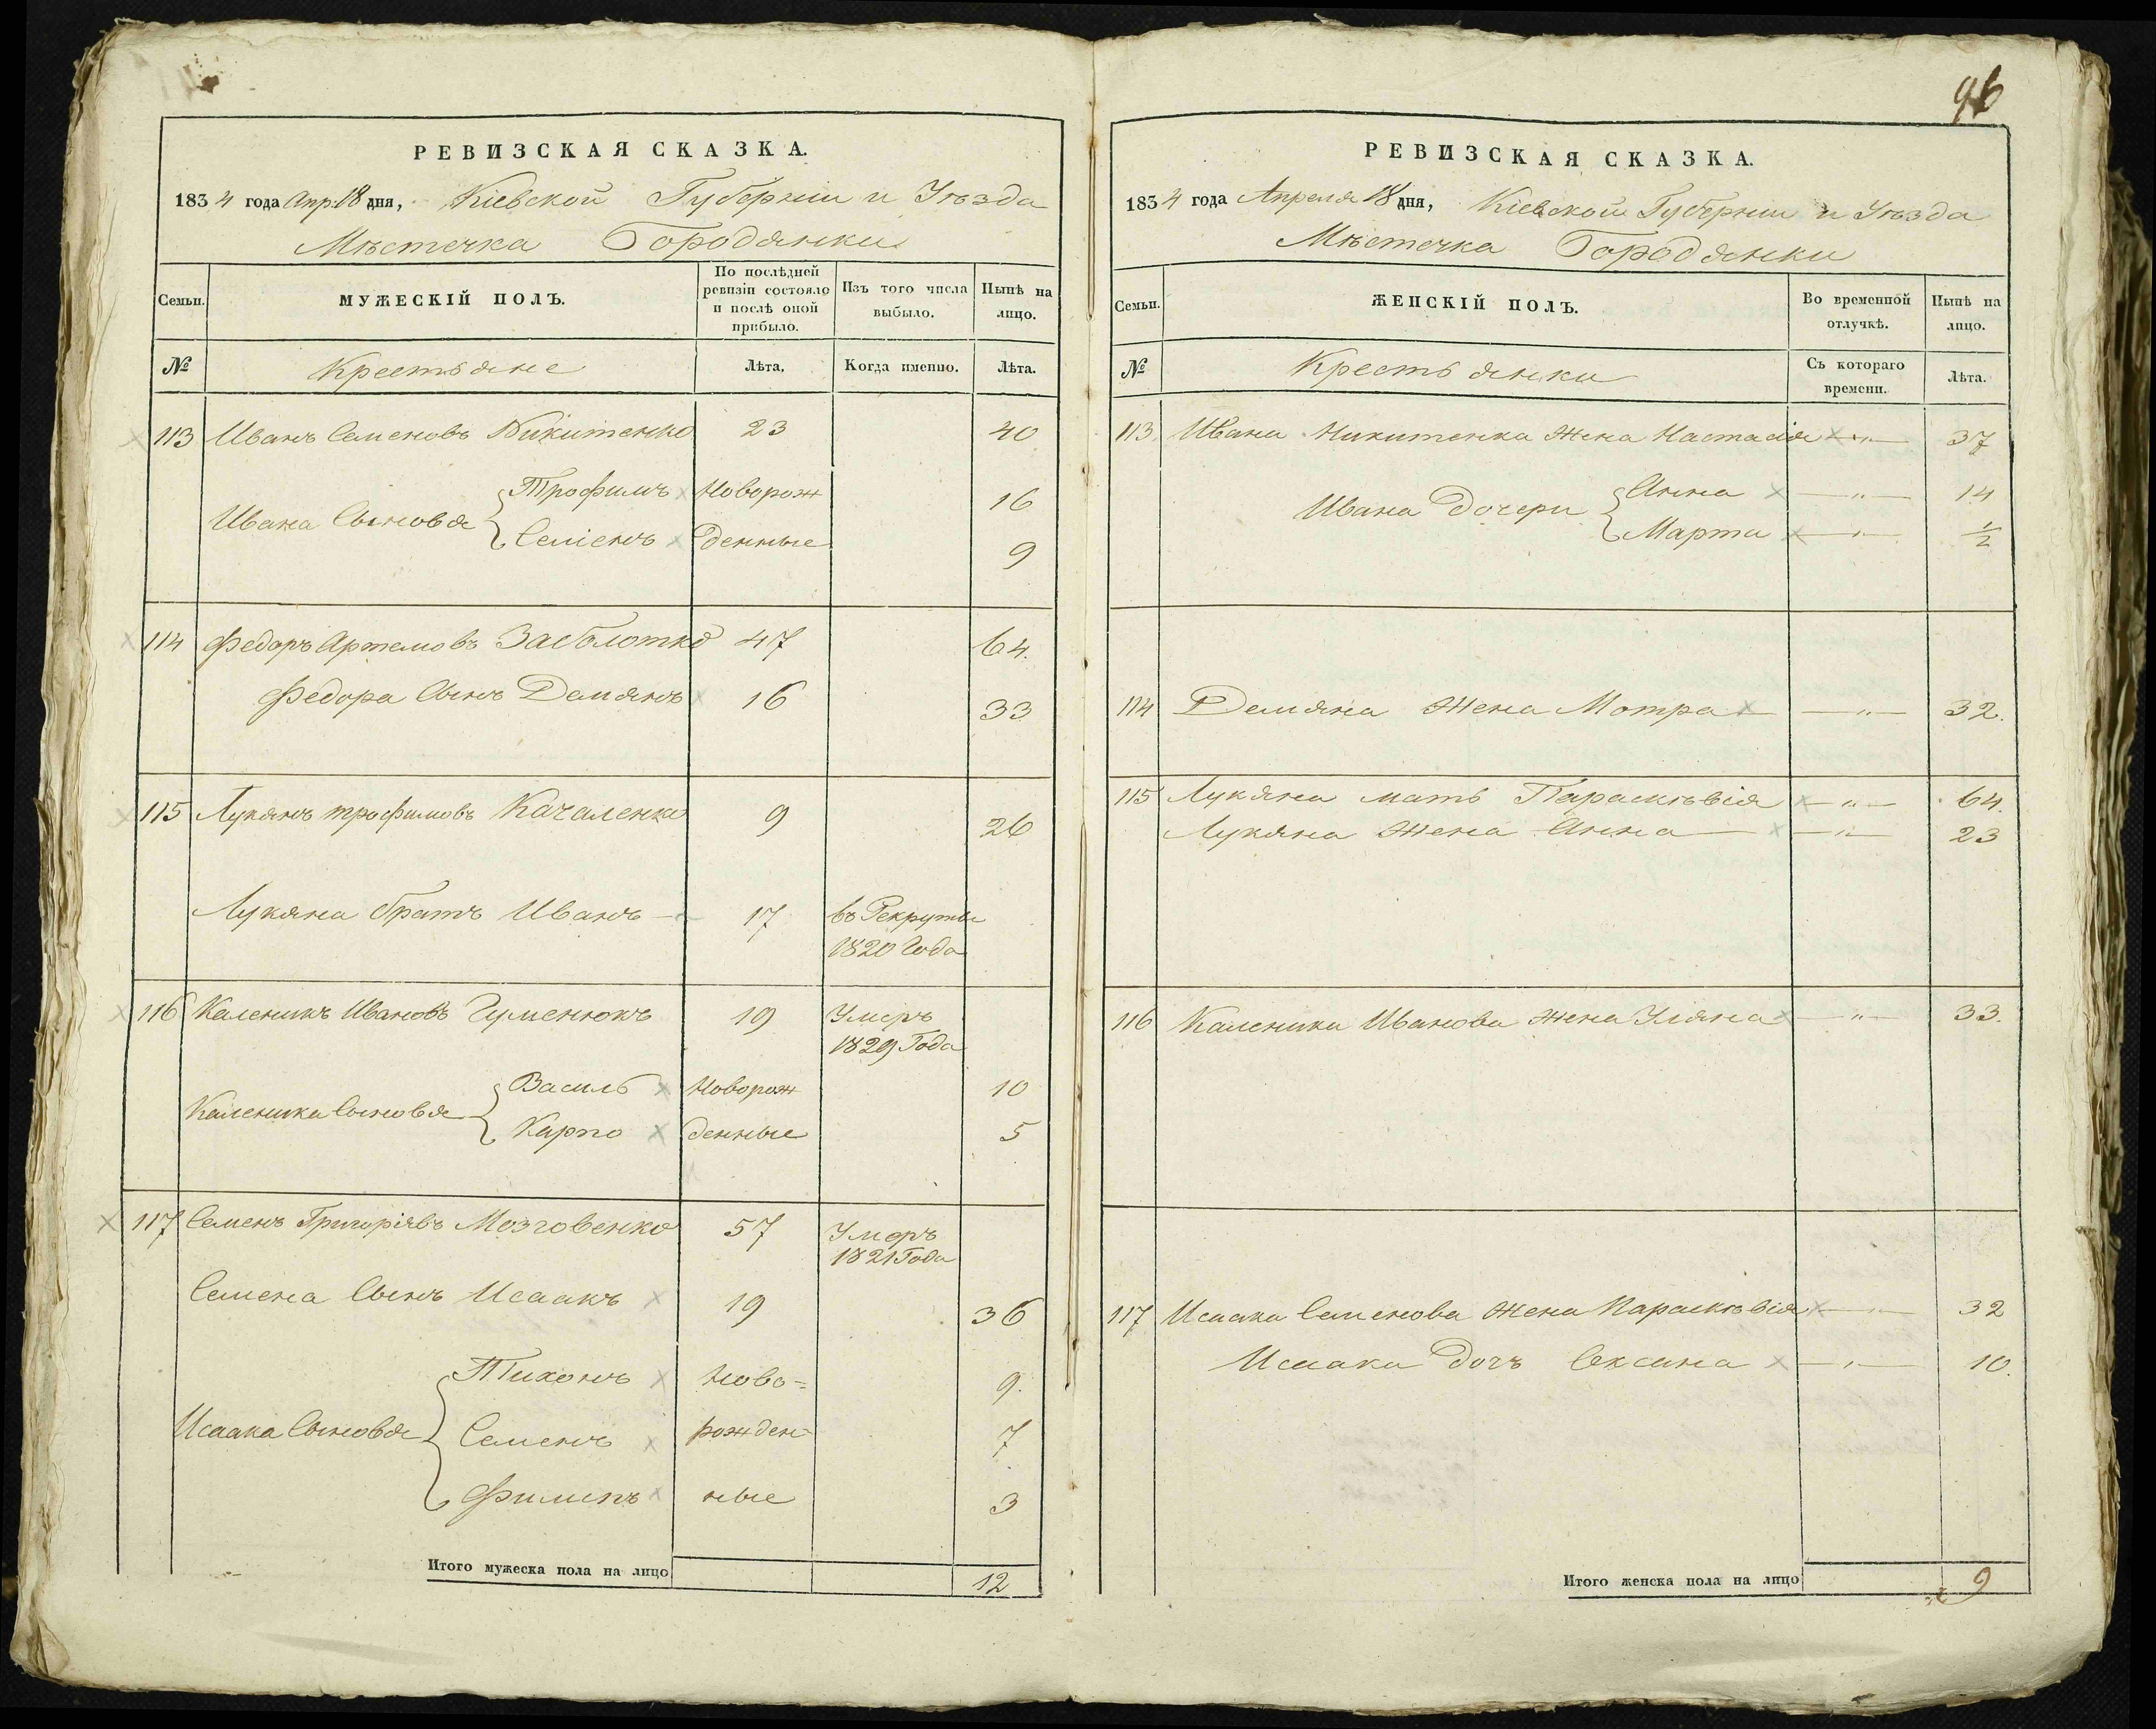 96
РЕВИЗСКАЯ СКАЗКА.
1834 года Апр: 18 дня, Кіевской Губерніи и Уѣзда
Мѣстечка Городянки
Семьи.
МУЖЕСКІЙ ПОЛЪ.
По послѣдней ревизіи состояло и послѣ оной прибыло.
Изъ того числа выбыло.
Нынѣ на лицо.
№
Крестьяне
Лѣта.
Когда именно.
Лѣта.
113 Иванъ Семеновъ Никитенко 23 40
Ивана Сыновья Трофимъ Новорож 16
Семенъ денные 9
114 Федоръ Артемовъ Заболотко 47 64.
Федора Сынъ Демянъ 16 33
115 Лукянъ трофимовъ Качаленко 9 26
Лукяна братъ Иванъ 17 въ Рекруты
1820 Года
116 Каленикъ Ивановъ Гуменюкъ 19 Умеръ
1829 Года
Каленика Сыновья Василь Новорож 10
Карпо денные 5
117 Семенъ Григоріевъ Мозговенко 57 Умеръ
1821 Года
Семена Сынъ Исаакъ 19 36
Исаака Сыновья Тихонъ Ново= 9.
Семенъ рожден- 7
Филипъ ные 3
Итого мужеска пола на лицо 12
РЕВИЗСКАЯ СКАЗКА.
1834 года Апреля 18 дня, Кіевской Губерніи и Уѣзда
Мѣстечка Городянки
Семьи.
ЖЕНСКІЙ ПОЛЪ.
Во временной отлучкѣ.
Нынѣ на лицо.
№
Крестьянки
Съ котораго времени.
Лѣта.
113. Ивана Никитенка жена Настасія — " — 37
Ивана Дочери Анна — " — 14
Марта — " — 1/2
114 Демяна жена Мотра — " — 32.
115 Лукяна мать Параскѣвія — " — 64.
Лукяна жена Анна — " — 23
116 Каленика Иванова жена Уляна — " — 33.
117 Исаака Семенова жена Параскѣвія — " — 32
Исаака дочъ Оксана — " — 10.
Итого женска пола на лицо 9